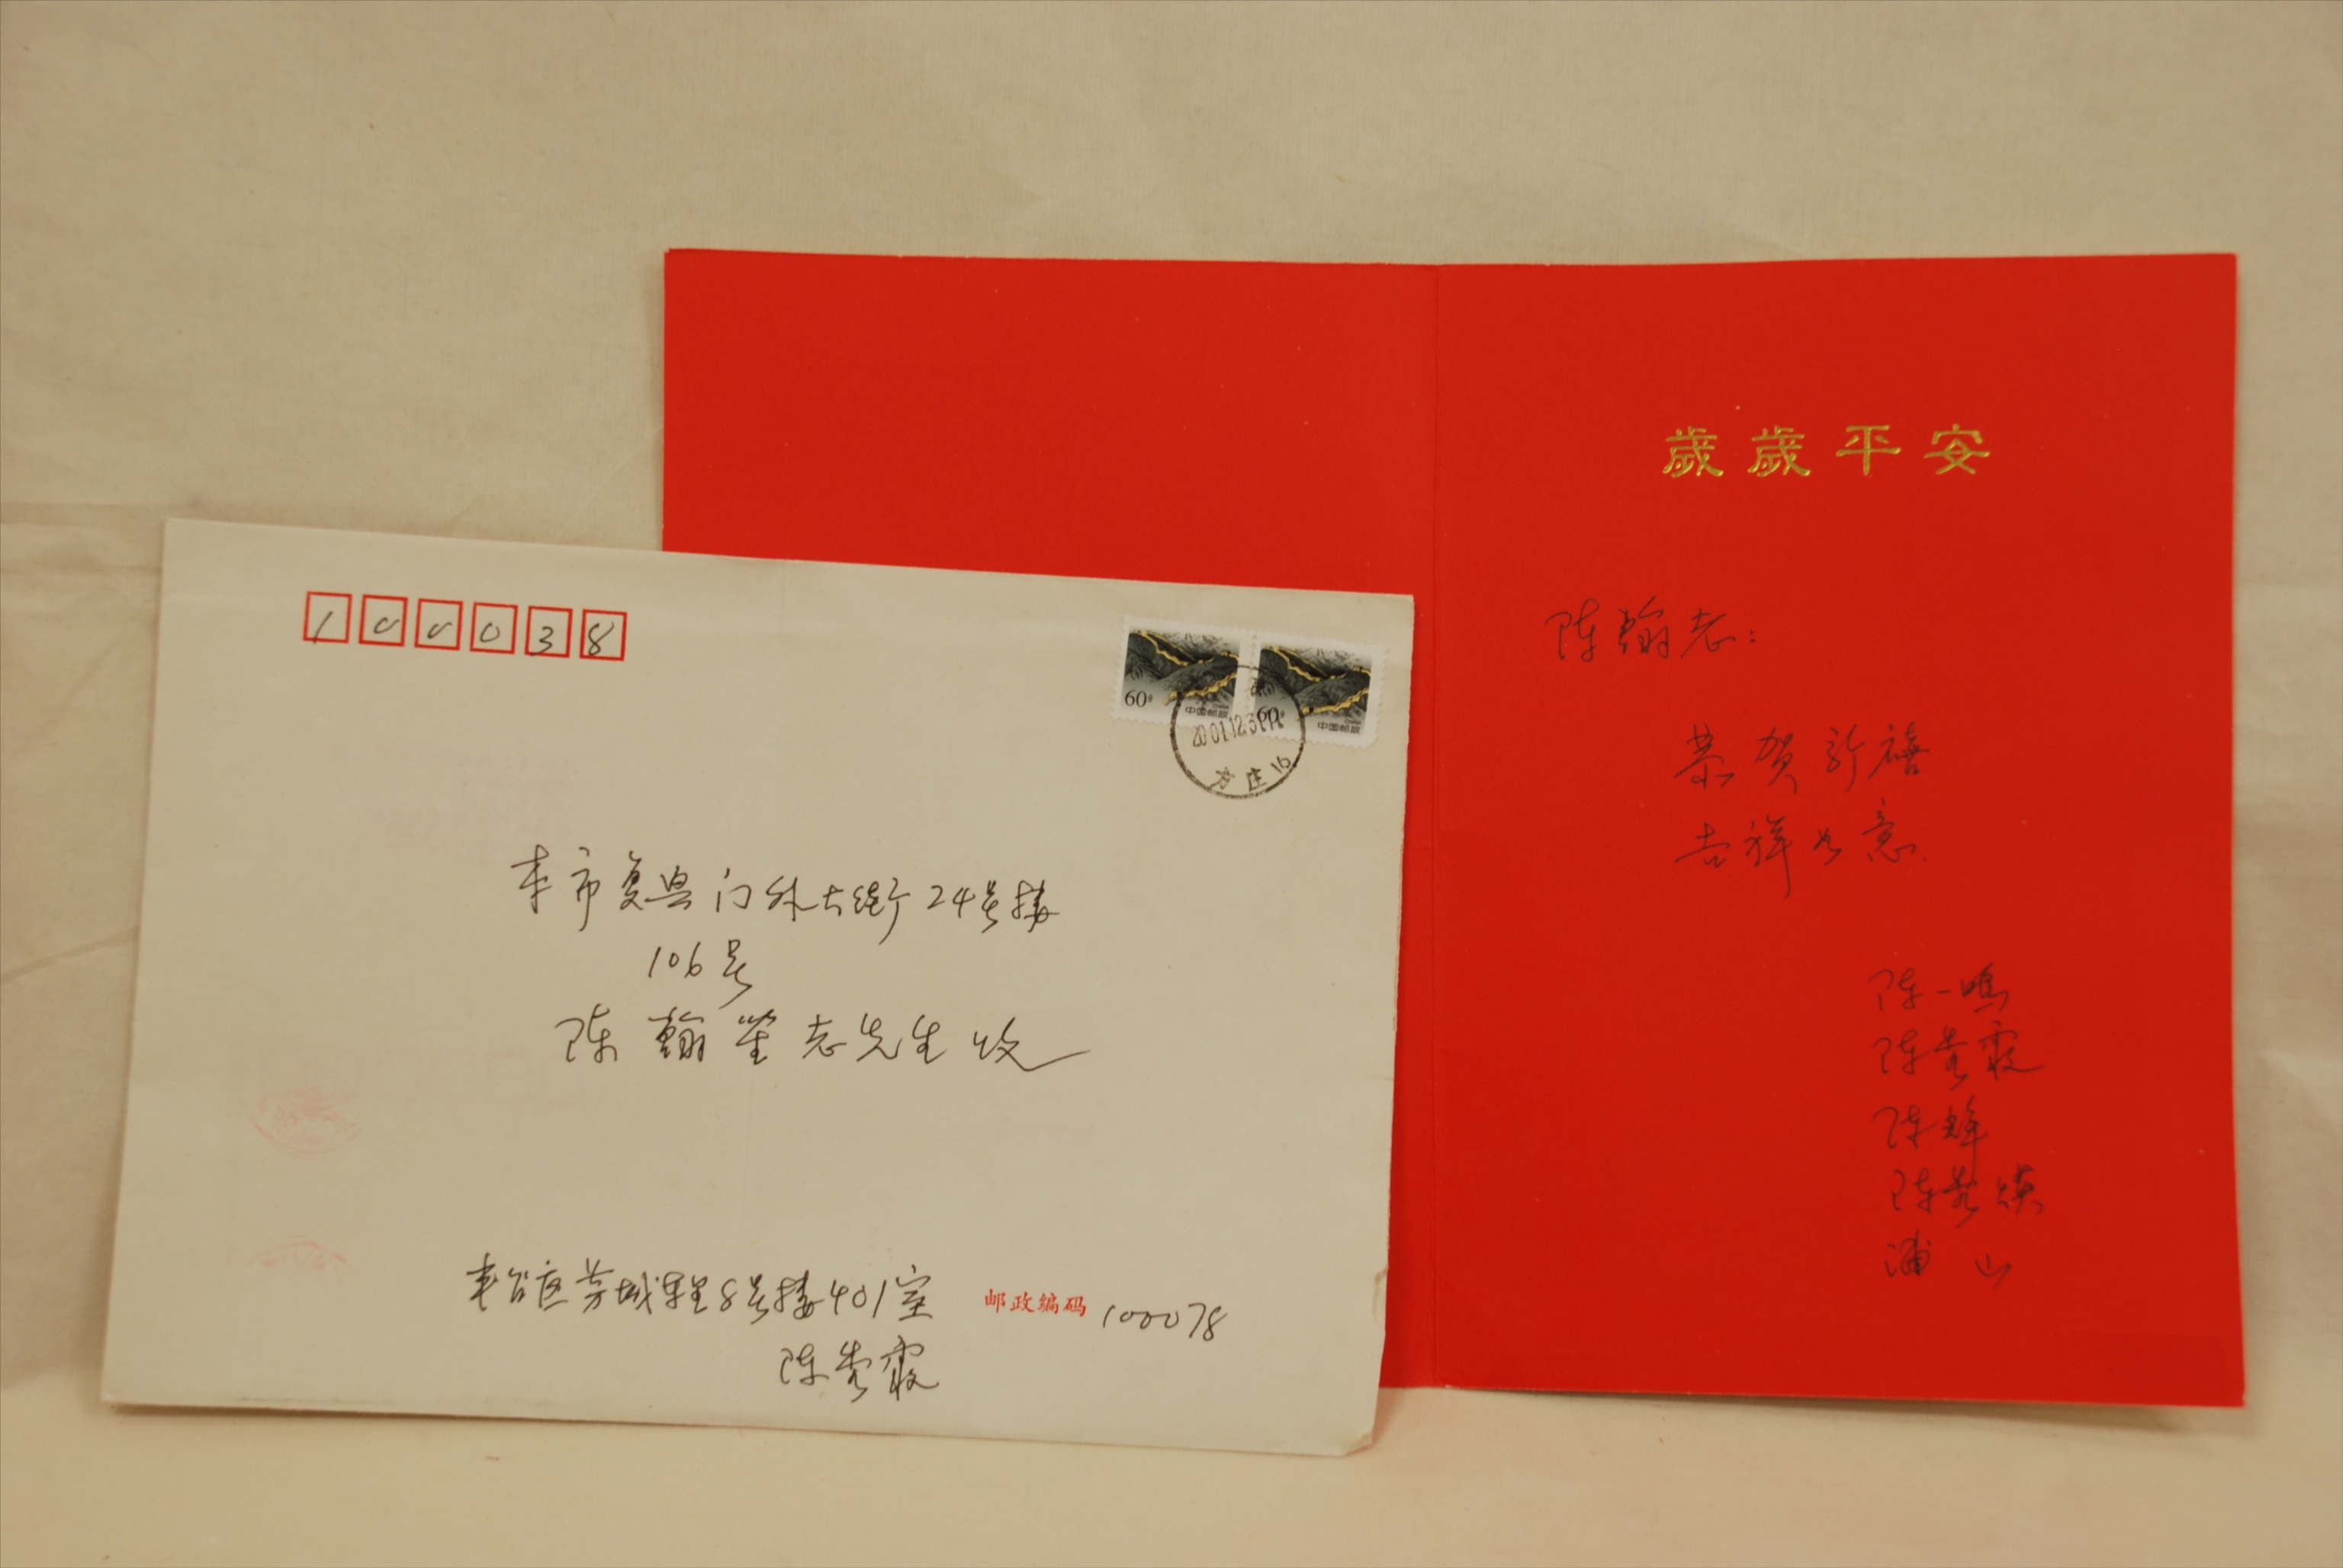 100038
60分
中国邮政
60分
中国邮政
2001.12.31
本市复兴门外大街24号楼
106号
陈翰笙老先生收
丰台区芳城里8号楼401室
邮政编码 100078
陈秀霞
歲歲平安
陈翰老:
恭贺新禧
吉祥如意
陈一鸣
陈秀霞
陈辉
浦山